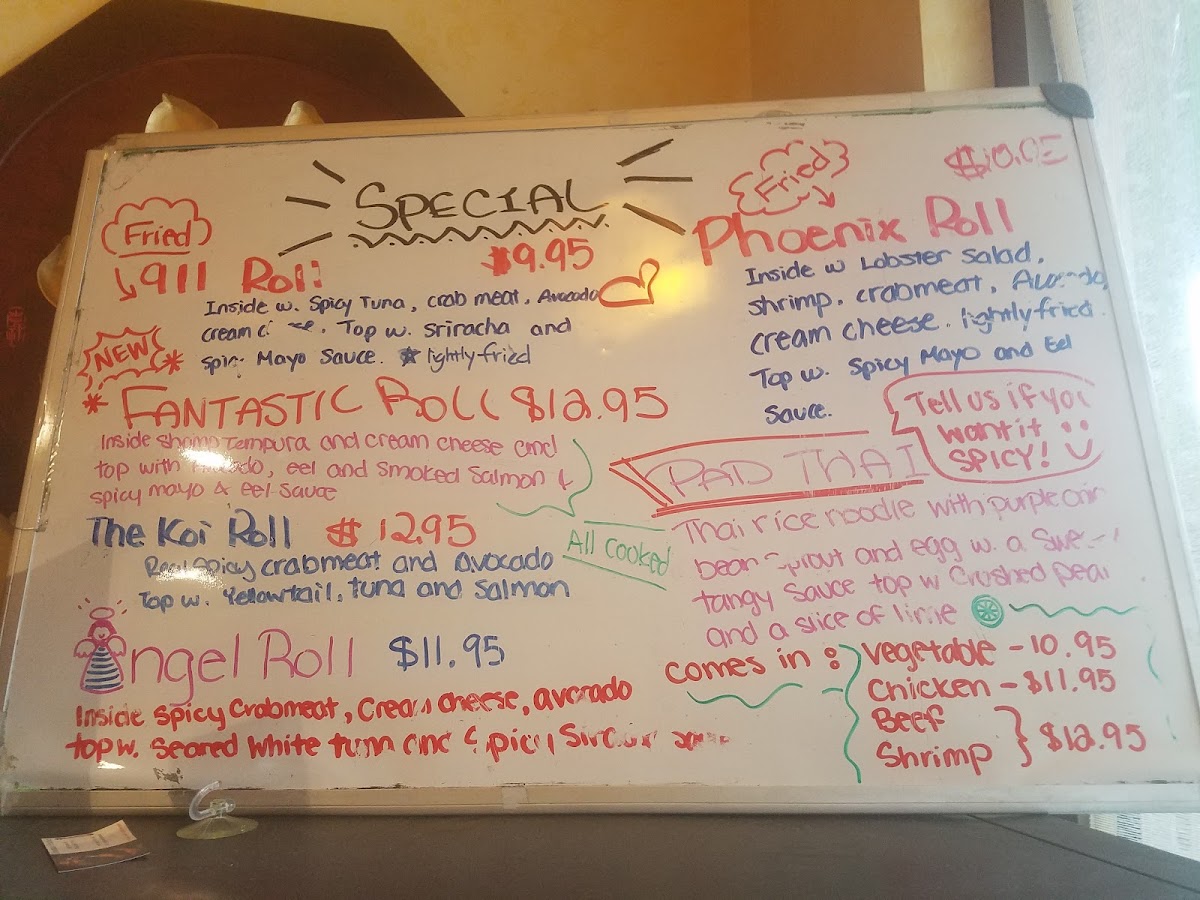 SPECIAL
Fried
911 Roll
$9.95
Inside w. Spicy Tuna, crab meat, Avocado
cream Top w. Sriracha and
Mayo Sauce. lightly fried
NEW
FANTASTIC ROLL $12.95
Inside Tempura and cream cheese and
top with eel and smoked salmon &
spicy mayo & eel sauce
All cooked
The Koi Roll $12.95
spicy crabmeat and avocado
Top w. Yellowtail, tuna and salmon
Angel Roll $11.95
Inside spicy crabmeat, Cream cheese, avocado
top w. Seared white
Fried
Phoenix Roll
Inside w Lobster Salad,
shrimp, crabmeat,
cream cheese. lightly fried.
Top w. Spicy Mayo and Eel
Sauce.
Tell us if you
want it
SPICY!
PAD THAI
Thai rice noodle with purple
bean and egg w. a
tangy Sauce top w Crushed
and a slice of lime
comes in :
vegetable - 10.95
Chicken - $11.95
Beef
Shrimp } $12.95